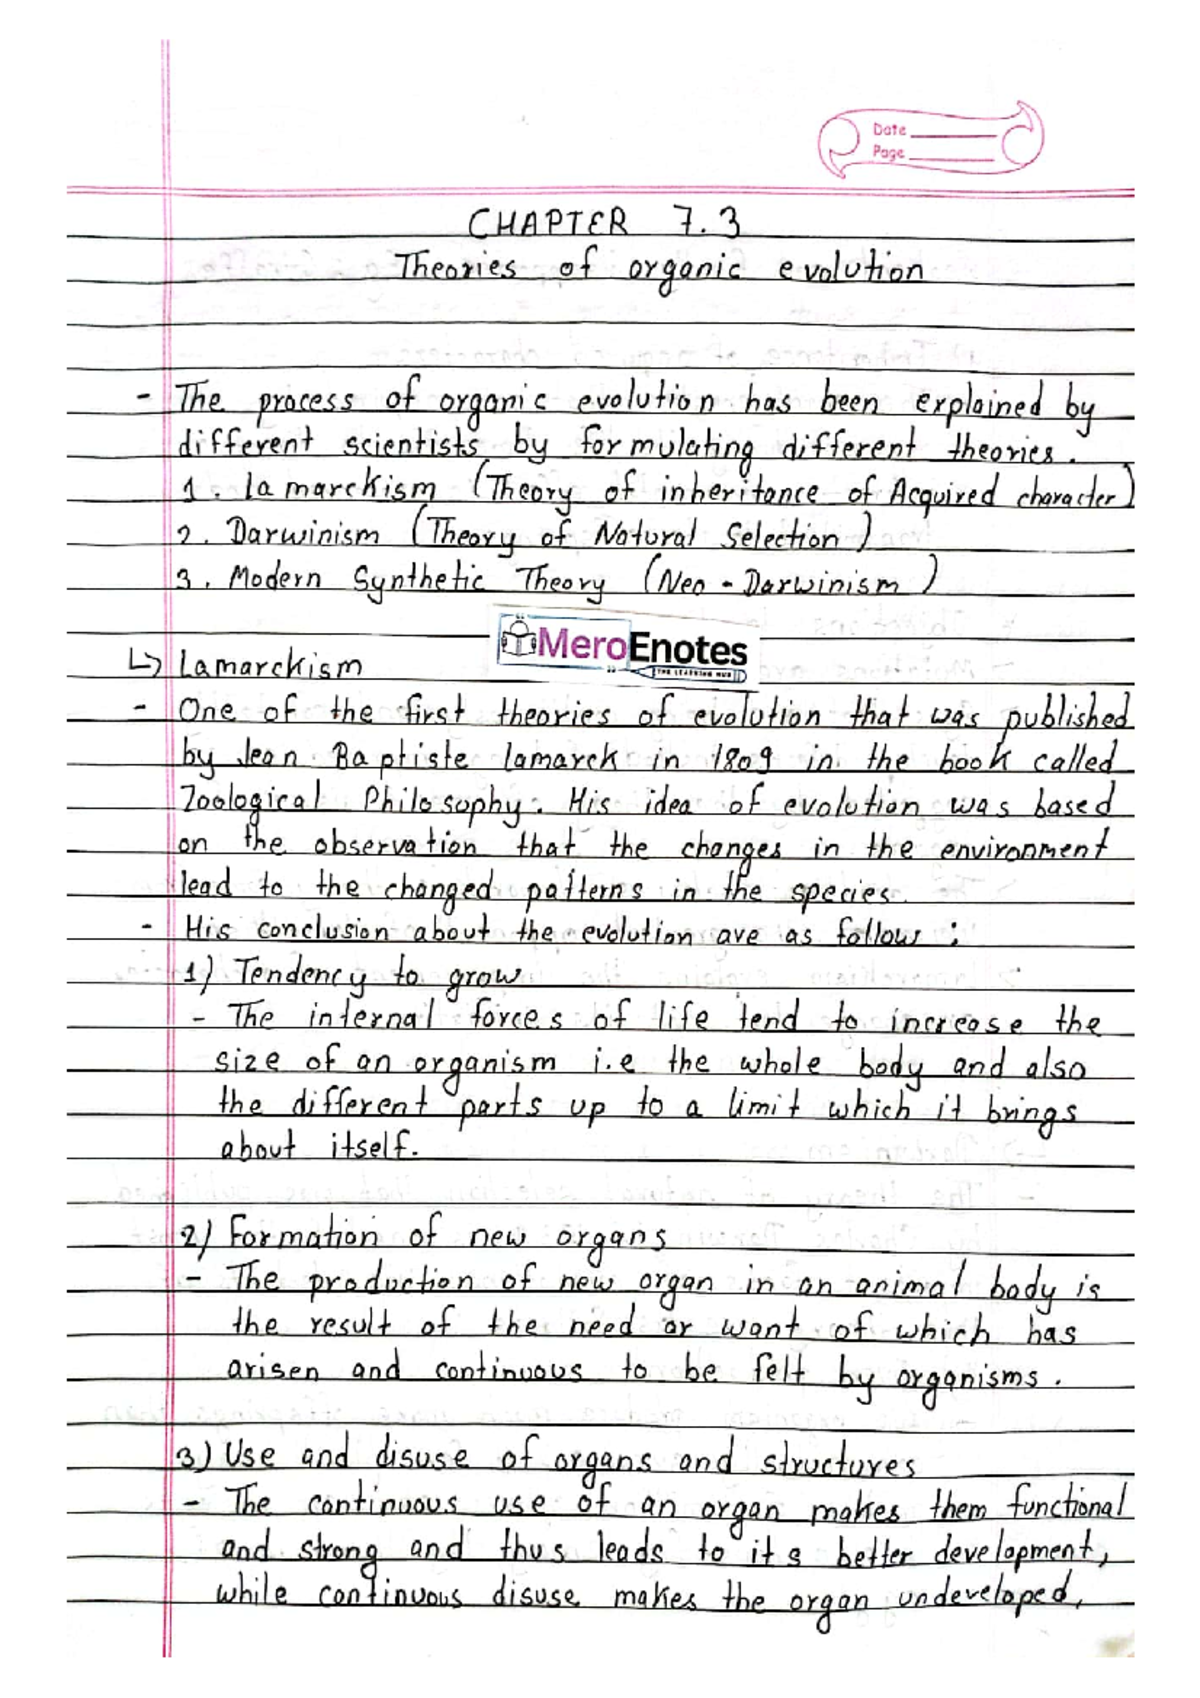 Date
Page
CHAPTER 7.3
Theories of organic evolution
- The process of organic evolution has been explained by
different scientists by formulating different theories.
1. Lamarckism (Theory of inheritance of Acquired character)
2. Darwinism (Theory of Natural Selection)
3. Modern Synthetic Theory (Neo-Darwinism)
MeroEnotes
THE LEARNING HUB
↳ Lamarckism
- One of the first theories of evolution that was published
by Jean Baptiste lamarck in 1809 in the book called
Zoological Philosophy. His idea of evolution was based
on the observation that the changes in the environment
lead to the changed patterns in the species.
- His conclusion about the evolution are as follows:
1) Tendency to grow
- The internal forces of life tend to increase the
size of an organism i.e the whole body and also
the different parts up to a limit which it brings
about itself.
2) Formation of new organs
- The production of new organ in an animal body is
the result of the need or want of which has
arisen and continuous to be felt by organisms.
3) Use and disuse of organs and structures
- The continuous use of an organ makes them functional
and strong and thus leads to its better development,
while continuous disuse makes the organ undeveloped,